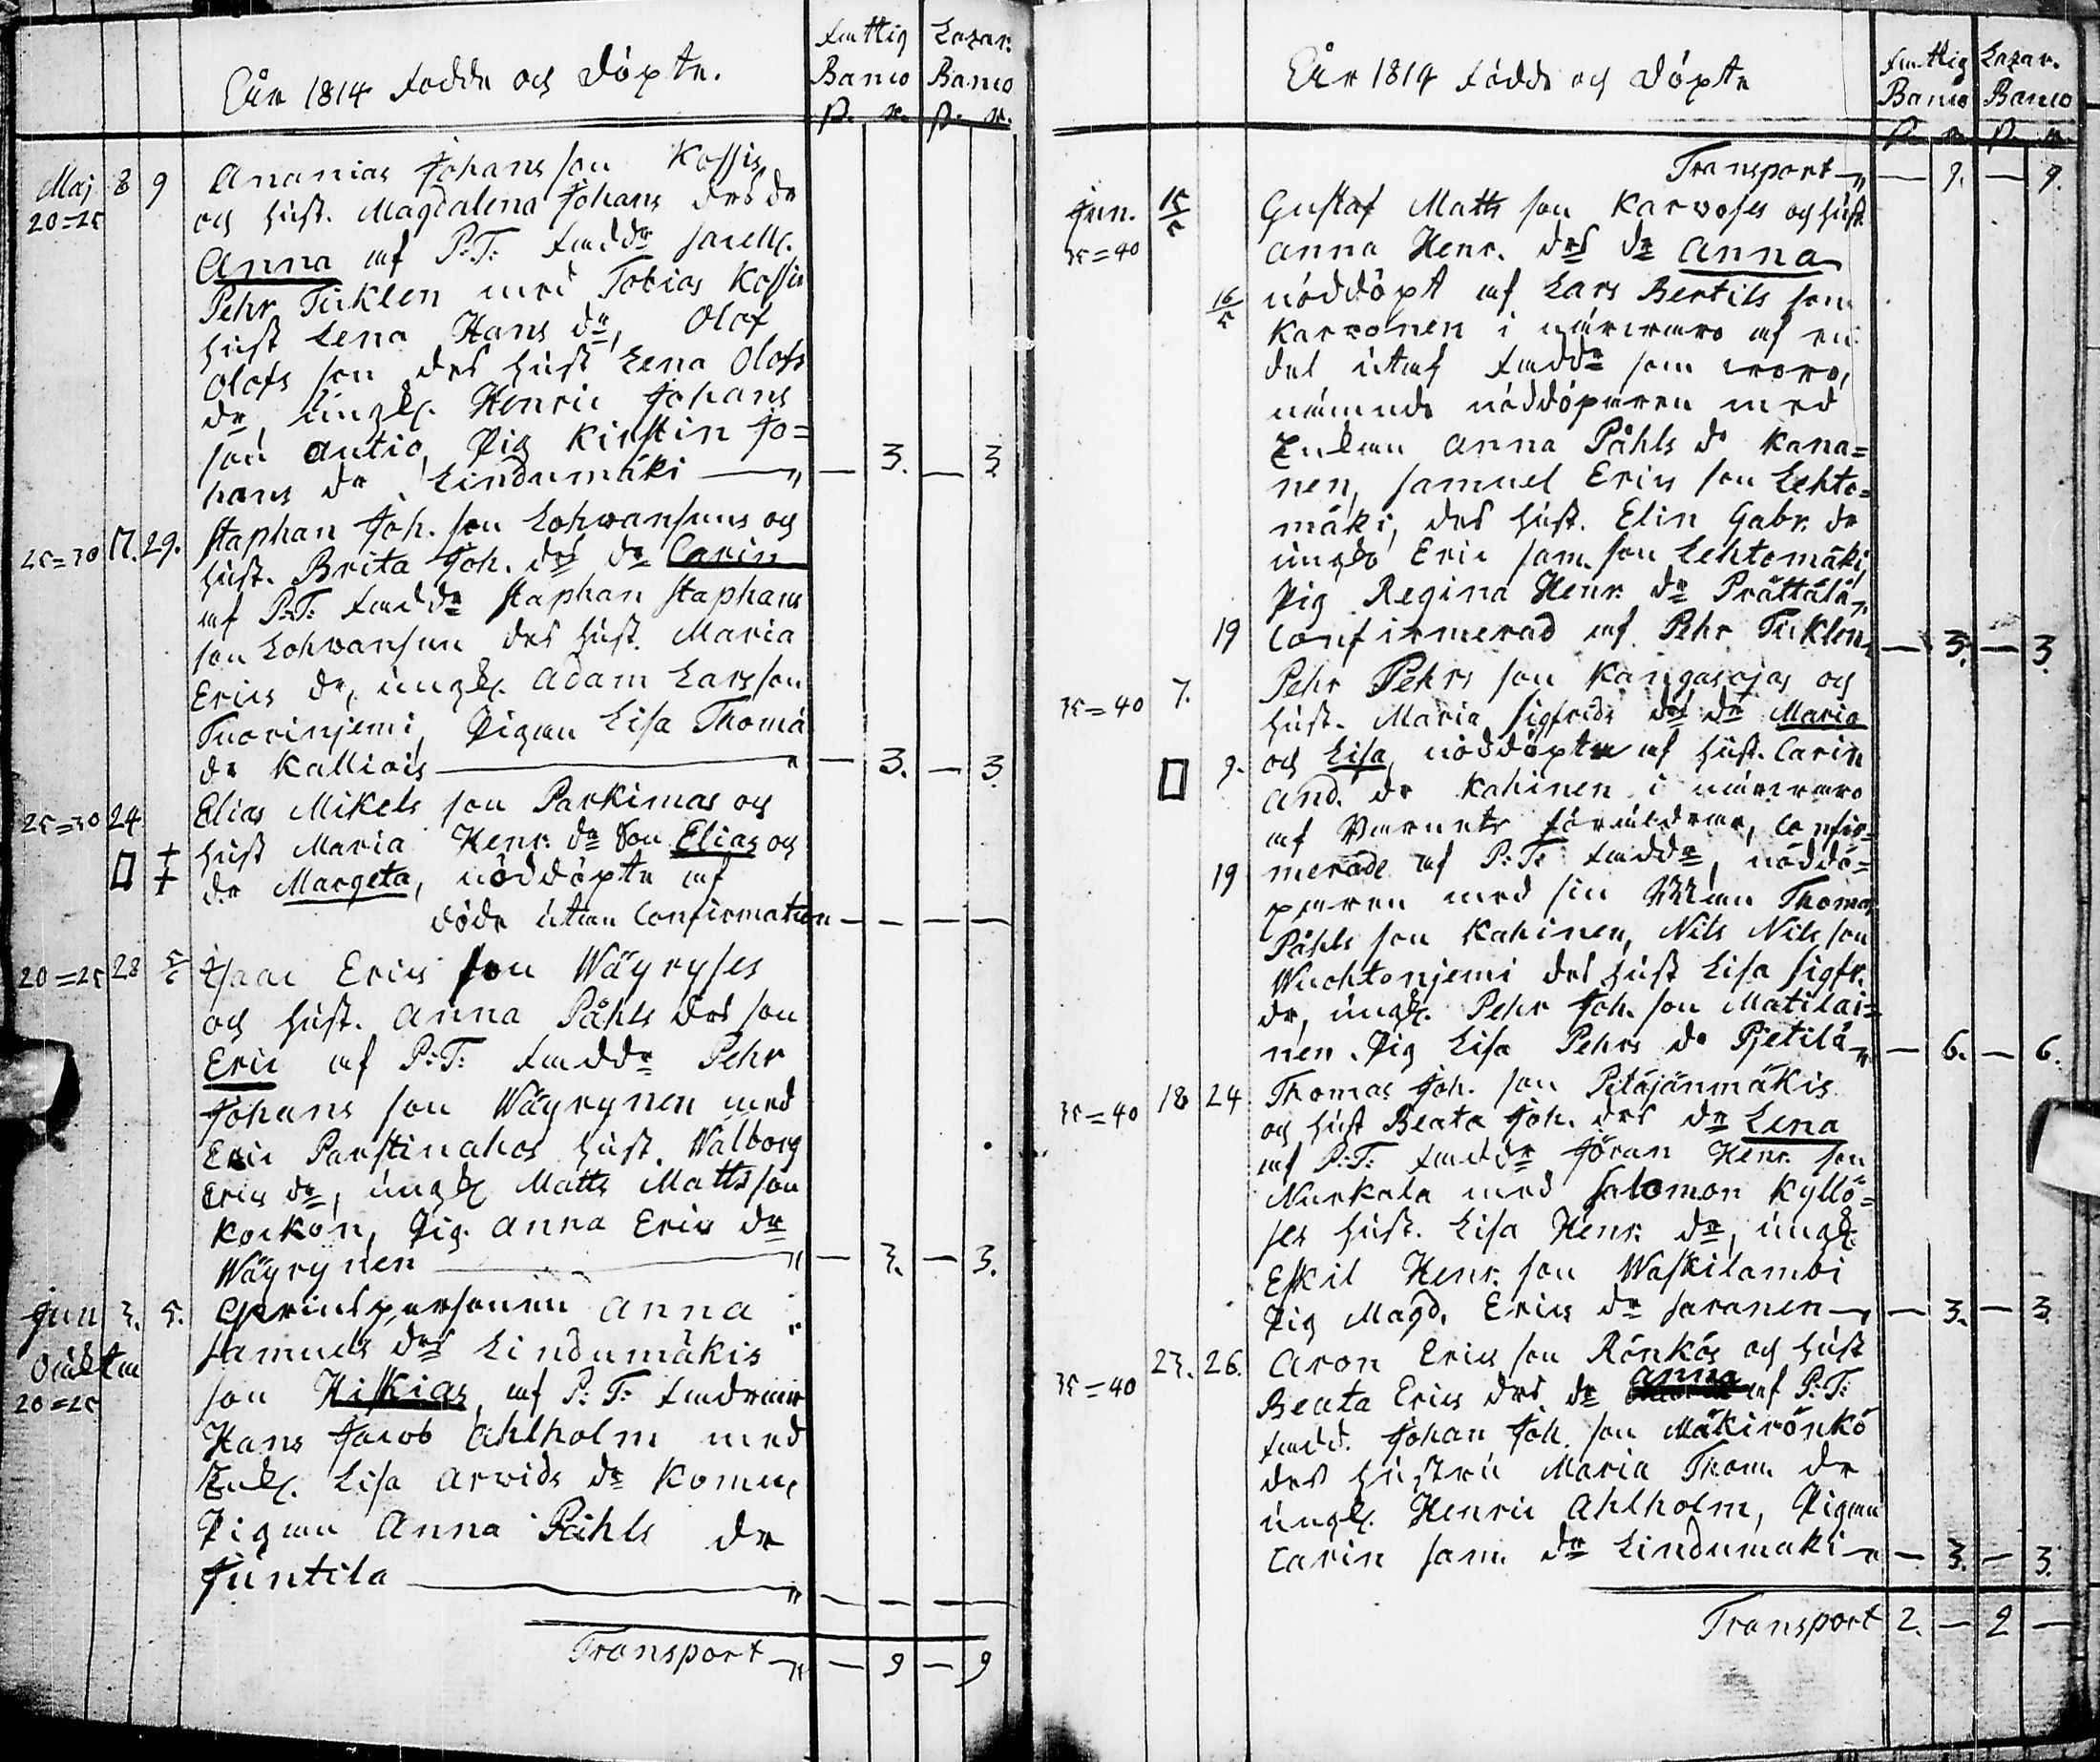 Åår 1814 födde och döpte.
Fattig Lazar.
Banco Banco
ß. r. ß. r.
Maj 8 9 Ananias Johans son Kossis
20=25 och hust. Magdalena Johans drs dr
Anna af P:T: faddr
Pehr Ticklen med Tobias Kossis
hust Lena Hans dr, Olof
Olofs son des hust Lena Olofs
dr, ungk. Henric Johans
son Antio, Pig Kirstin Jo=
hans dr Lindumäki — 3. — 3
25=30 17. 29. Staphan Joh. son Lohwansuus och
hust. Brita Joh. drs dr Carin
af P:T: faddr Staphan Staphans
son Lohwansuu des hust. Maria
Erics dr, ungk. Adam Larsson
Tuorinjemi, Pigan Lisa Thoma
dr Kalliais — 3. — 3
25=30 24 Elias Mikels son Parkimas och
hust Maria Henr. dr Son Elias och
dr Margeta, nöddöpte af
döde utan Confirmation — — — —
20=25 28 5/6 Isaac Erics son Wäyryses
och hust. Anna Påhls drs son
Eric af P:T: faddr Pehr
Johans son Wäyrynen med
Eric Parstinahos hust. Walborg
Erics dr, ungk Matts Matts son
Kockon, Pig. Anna Erics dr
Wäyrynen — 3. — 3.
Jun 3. 5. Qvinspersonen Anna
Samuels drs Lindumäkis
Oäkta
20=25 son Hiskias, af P:T: faddrar
Hans Jacob Ahlholm med
Enk. Lisa Arvids dr
Pigan Anna Påhls dr
Juntila — — — —
Transport — 9 — 9
Åår 1814 födde och döpte
Fattig Lazar.
Banco Banco
ß. r. ß. r.
Transport — 9. — 9.
Jun. 15/5 Gustaf Matts son Karvoses och hust
35=40 Anna Henr. drs dr Anna
16/5 nöddöpt af Lars Bertils son
Karvonen i närvaro af en
del utaf faddr som voro,
nämnde nöddöparen med
Enkan Anna Påhls dr Kana=
nen, Samuel Erics son Lehto=
mäki, des hust. Elin Gabr. dr
ungk Eric Sam. son Lehtomäki,
Pig Regina Henr. dr Prättälä,
19 Confirmerad af Pehr Ticklen — 3. — 3.
35=40 7. Pehr Pehrs son Kangasojas och
hust. Maria Sigfrids drs dr Maria
9. och Lisa, nöddöpte af hust. Carin
And. dr Kahinen i närvaro
af Barnets föräldrar, Confir=
19 merade af P:T: faddr, nöddö=
paren med sin Man Thomas
Påhls son Kahinen, Nils Nils son
Wuchtonjemi des hust Lisa Sigfr.
dr, ungk. Pehr Joh. son Matilai=
nen. Pig Lisa Pehrs dr Pjetilä — 6. — 6.
35=40 18 24. Thomas Joh. son Pitäjänmäkis
och hust Beata Joh. drs dr Lena
af P:T: faddr Jöran Henr. son
Nurkala med Salomon Kyllö=
ses hust. Lisa Henr. dr, ungk.
Eskil Henr. son Waskilambi
Pig Magd. Erics dr Saranen — 3. — 3.
35=40 23. 26. Aron Erics son Rönkös och hust
Beata Erics drs dr Anna af P:T:
fadd. Johan Joh. son Mäkirönkö
des hustru Maria Thom. dr
ungk. Henric Ahlholm, Pigan
Carin Sam. dr Lindumaki — 3. — 3.
Transport 2. — 2 —